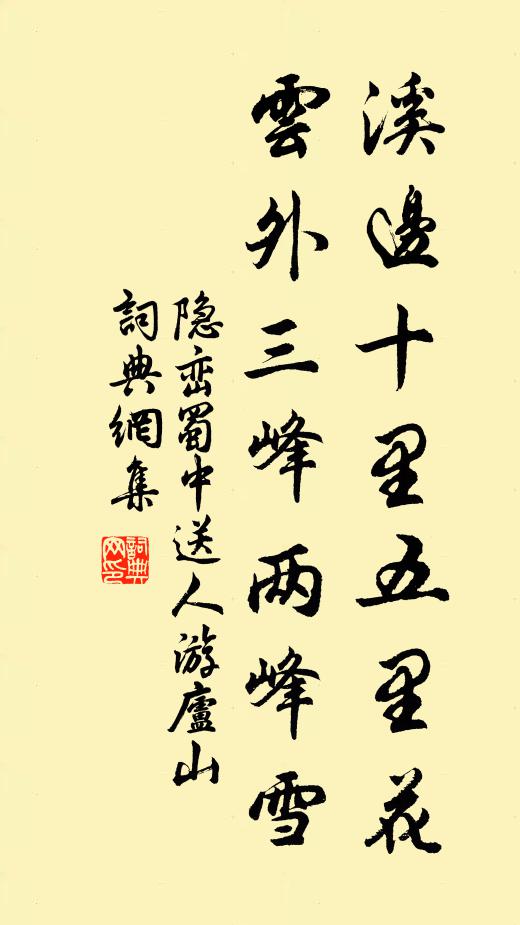 溪邊十里五里花
雲外三峰两峰雪
隐峦蜀中送人游廬山
詞典網集
詞典網印